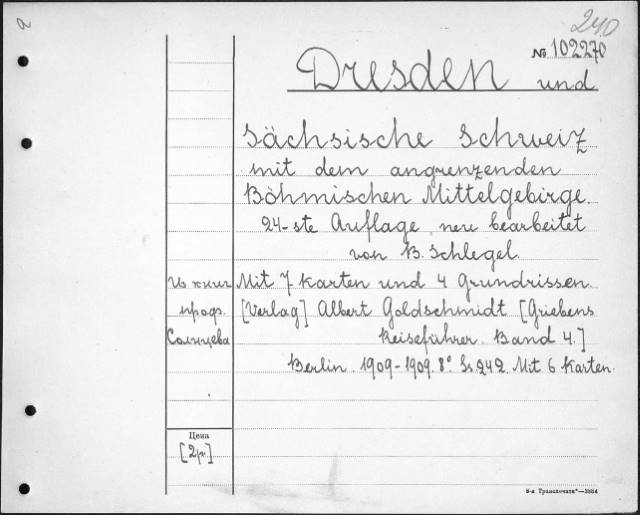 a
240
№ 102270
Dresden und
Sächsische Schweiz
mit dem angrenzenden
Böhmischen Mittelgebirge.
24-ste Auflage, neu bearbeitet
von B. Schlegel.
Из книг
проф.
Солнцева
Mit 7 Karten und 4 Grundrissen.
[Verlag] Albert Goldschmidt [Griebens
Reiseführer. Band 4.]
Berlin. 1909-1909. 8° Ss 242. Mit 6 Karten.
Цена
[2р.]
5-я Транспечать"—3864